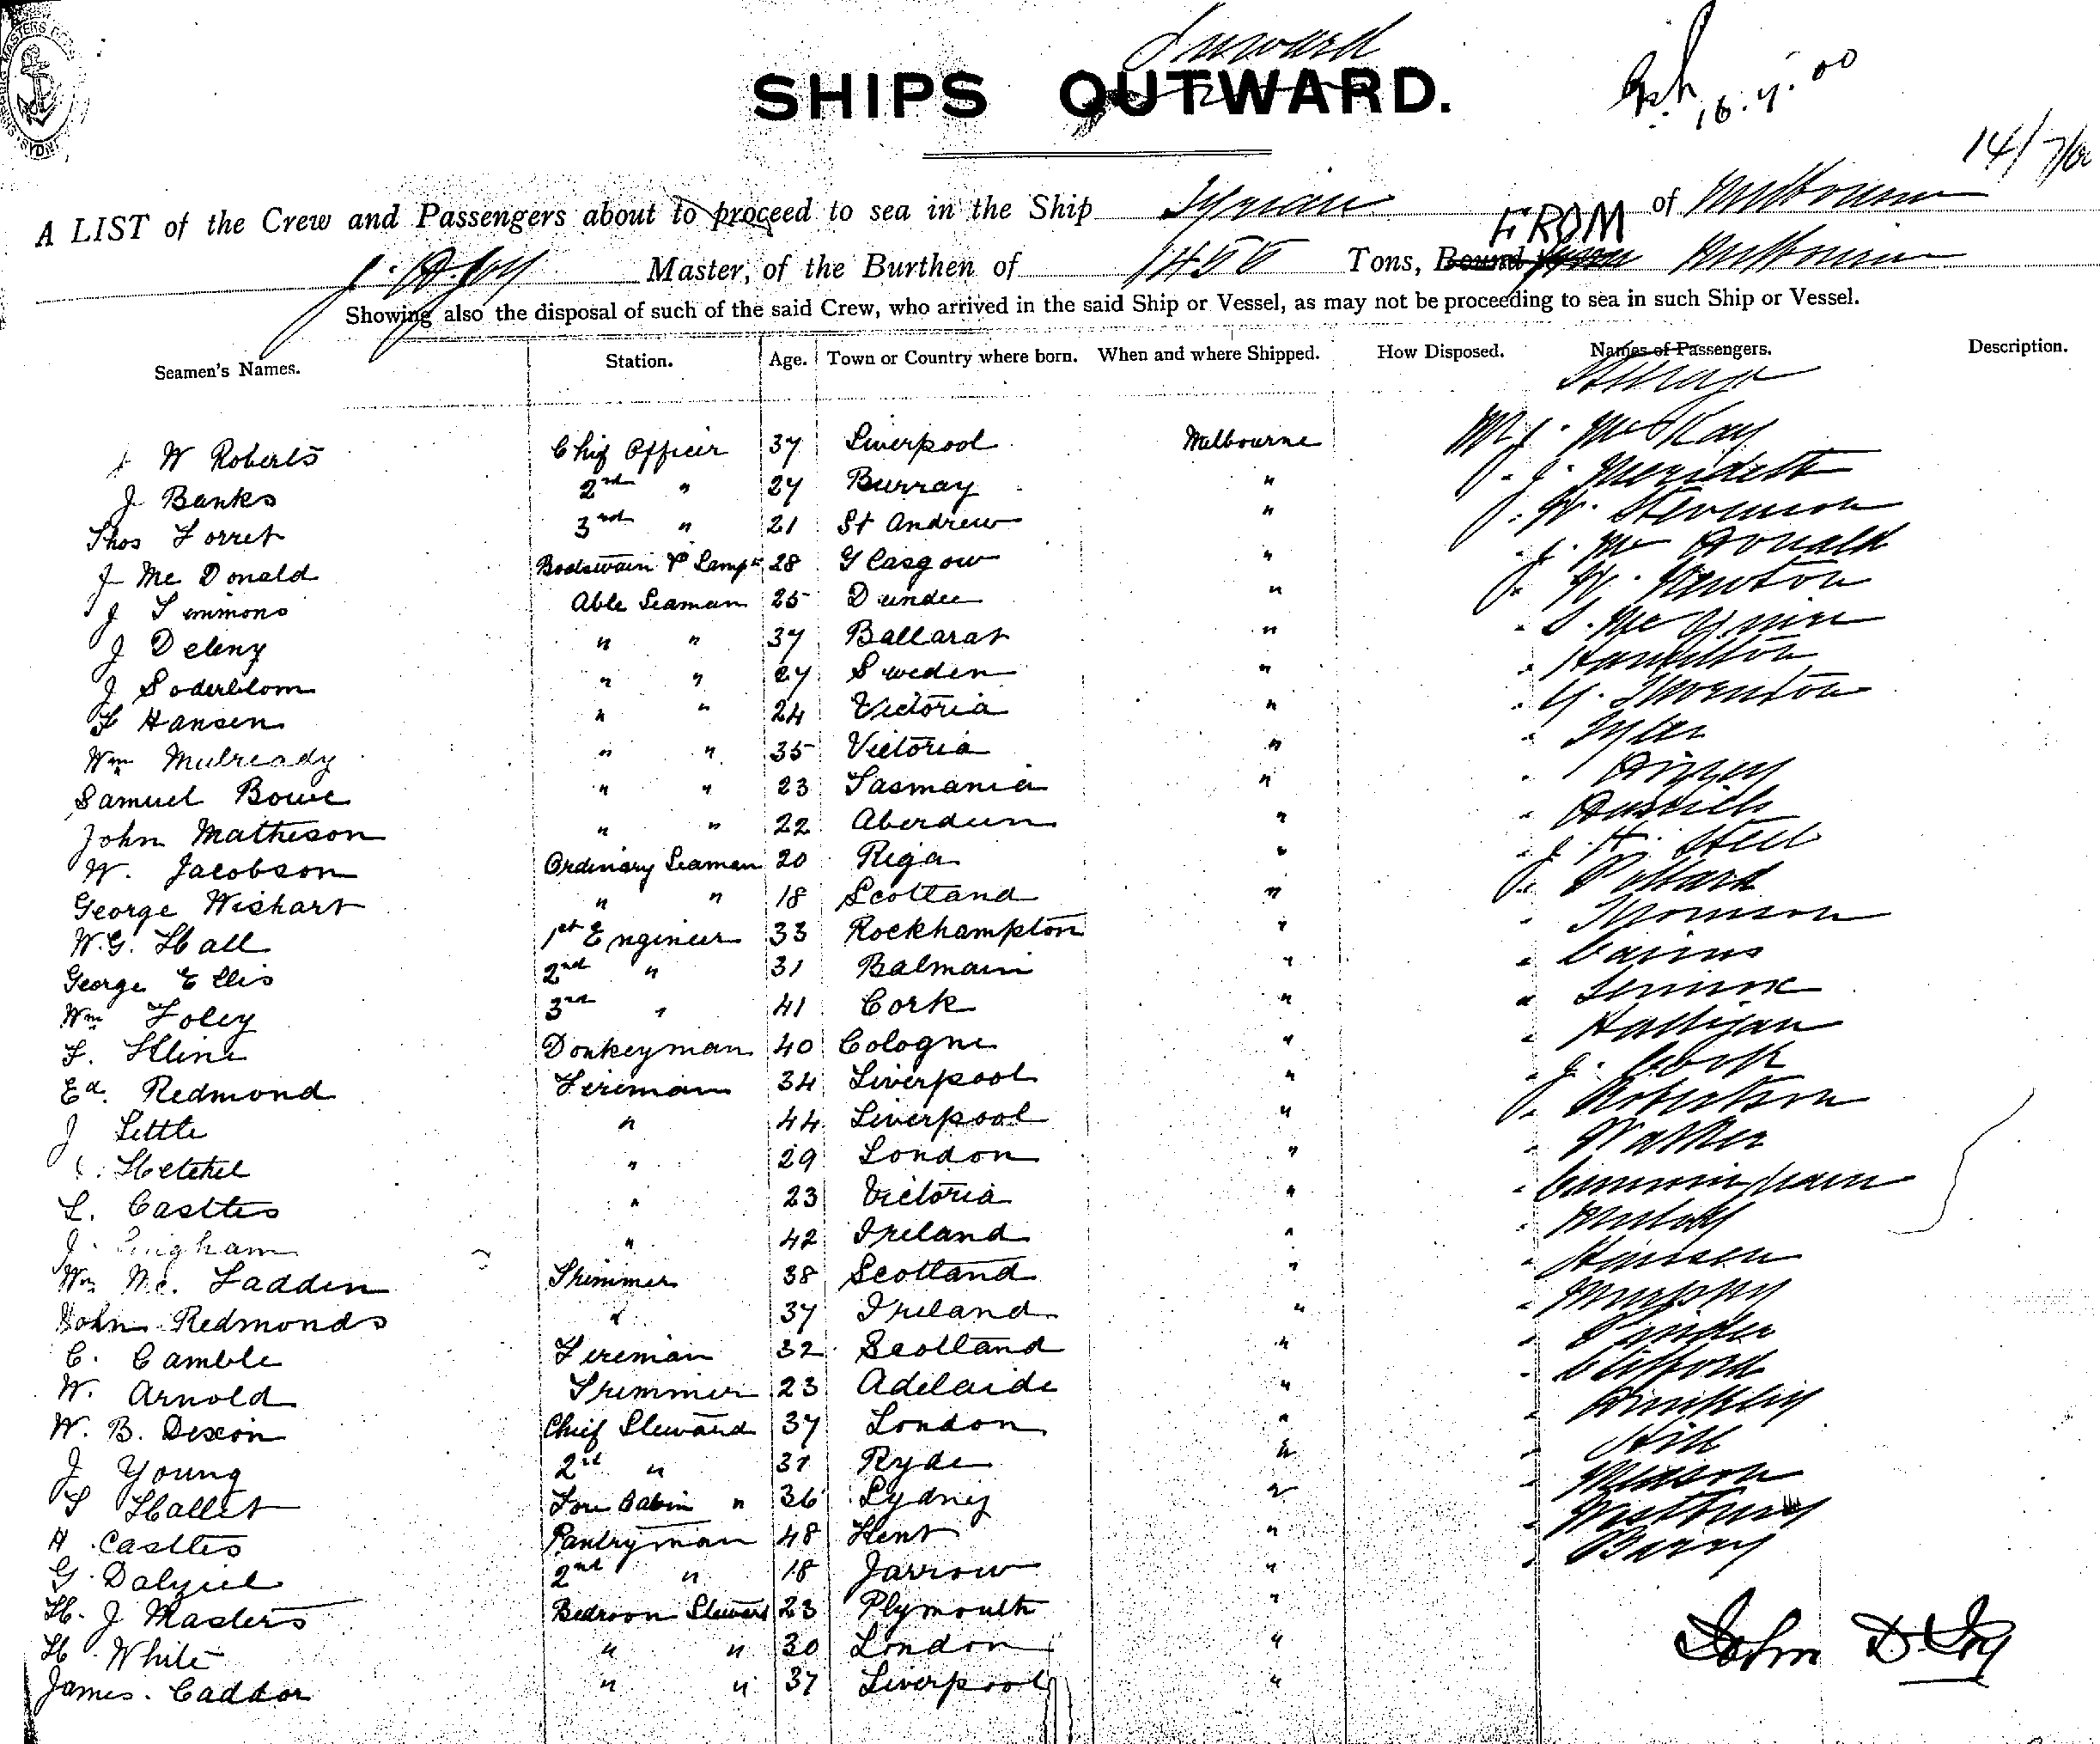 Inward
SHIPS OUTWARD.
16.7.00
14/7/00
A LIST of the Crew and Passengers about to proceed to sea in the Ship Tyrian of Melbourne
FROM
Master, of the Burthen of 1455 Tons, Bound Melbourne
Showing also the disposal of such of the said Crew, who arrived in the said Ship or Vessel, as may not be proceeding to sea in such Ship or Vessel.
Seamen's Names. Station. Age. Town or Country where born. When and where Shipped. How Disposed. Names of Passengers. Description.
W Roberts Chief Officer 37 Liverpool Melbourne Mr J. McKay
J Banks 2nd " 27 Burray " " J. Meridith
Thos Forret 3rd " 21 St Andrew " " W. Stevenson
J Mc Donald Boatswain & Lamps 28 Glasgow " " J. Mc Donald
J Simmons Able Seaman 25 Dundee " " W. Newton
J Deleny " " 37 Ballarat " "
J Soderblom " " 27 Sweden " " Hamilton
F Hansen " " 24 Victoria " " G. Thornton
Wm Mulready " " 35 Victoria " " Tyler
Samuel Bowe " " 23 Tasmania " "
John Matheson " " 22 Aberdeen " "
W. Jacobson Ordinary Seaman 20 Riga " " J. H. Steel
George Wishart " " 18 Scotland " " Pollard
W.G. Hall 1st Engineer 33 Rockhampton " " Thomson
George Ellis 2nd " 31 Balmain " " Cairns
Wm Foley 3rd " 41 Cork " " Lennox
F. Kline Donkeyman 40 Cologne " " Hattigan
Ed. Redmond Fireman 34 Liverpool " " J. Cook
J Little " 44 Liverpool " " Robertson
" 29 London " " Walker
L. Castles " 23 Victoria " " Cunningham
J. Bingham " 42 Ireland " "
Wm Mc. Fadden Trimmer 38 Scotland " " Hansen
John Redmonds " 37 Ireland " " Murphy
C. Camble Fireman 32 Scotland " "
W. Arnold Trimmer 23 Adelaide " " Clifford
W. B. Dixon Chief Steward 37 London " "
J Young 2nd " 31 Ryde " " Hill
S Hallet Fore Cabin " 36 Sydney " " Mason
H. Castles Pantryman 48 Kent " " Westbury
G. Dalziel 2nd " 18 Jarrow " " Barry
H. J Masters Bedroom Steward 23 Plymouth "
H. White " " 30 London "
James. Caddor " " 37 Liverpool "